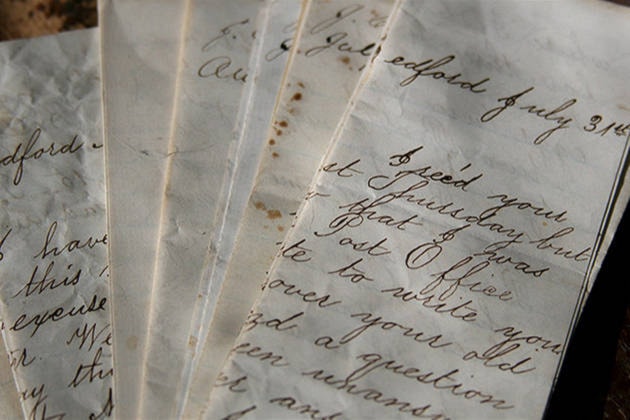 dford
I have
this
excuse
r. We
ay thi
J.
Au
J.
edford July 31st
I rec'd your
st Thursday but
r that I was
Post Office
te to write you
over your old
nd a question
een unansw
er ans